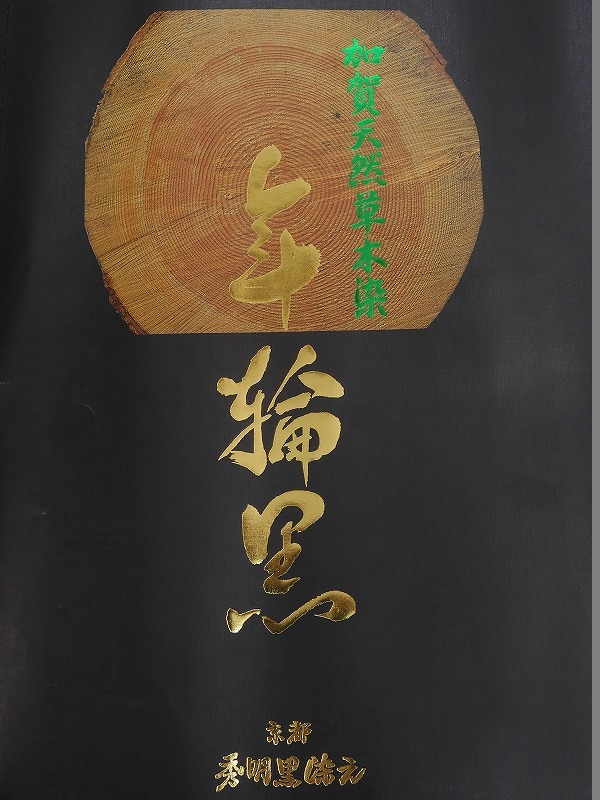 加賀天然草木染
年輪黒
京都
秀明黒染元